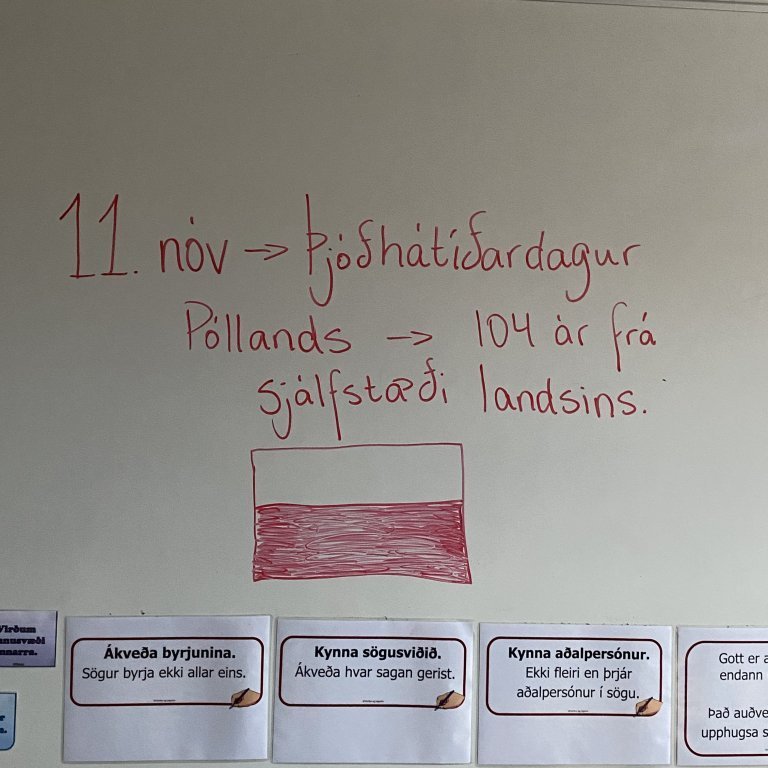 11. nóv → Þjóðhátíðardagur
Póllands → 104 ár frá
sjálfstæði landsins.
Virðum
Ákveða byrjunina.
Sögur byrja ekki allar eins.
Kynna sögusviðið.
Ákveða hvar sagan gerist.
Kynna aðalpersónur.
Ekki fleiri en þrjár
aðalpersónur í sögu.
Gott er
endann
Það
upphugsa